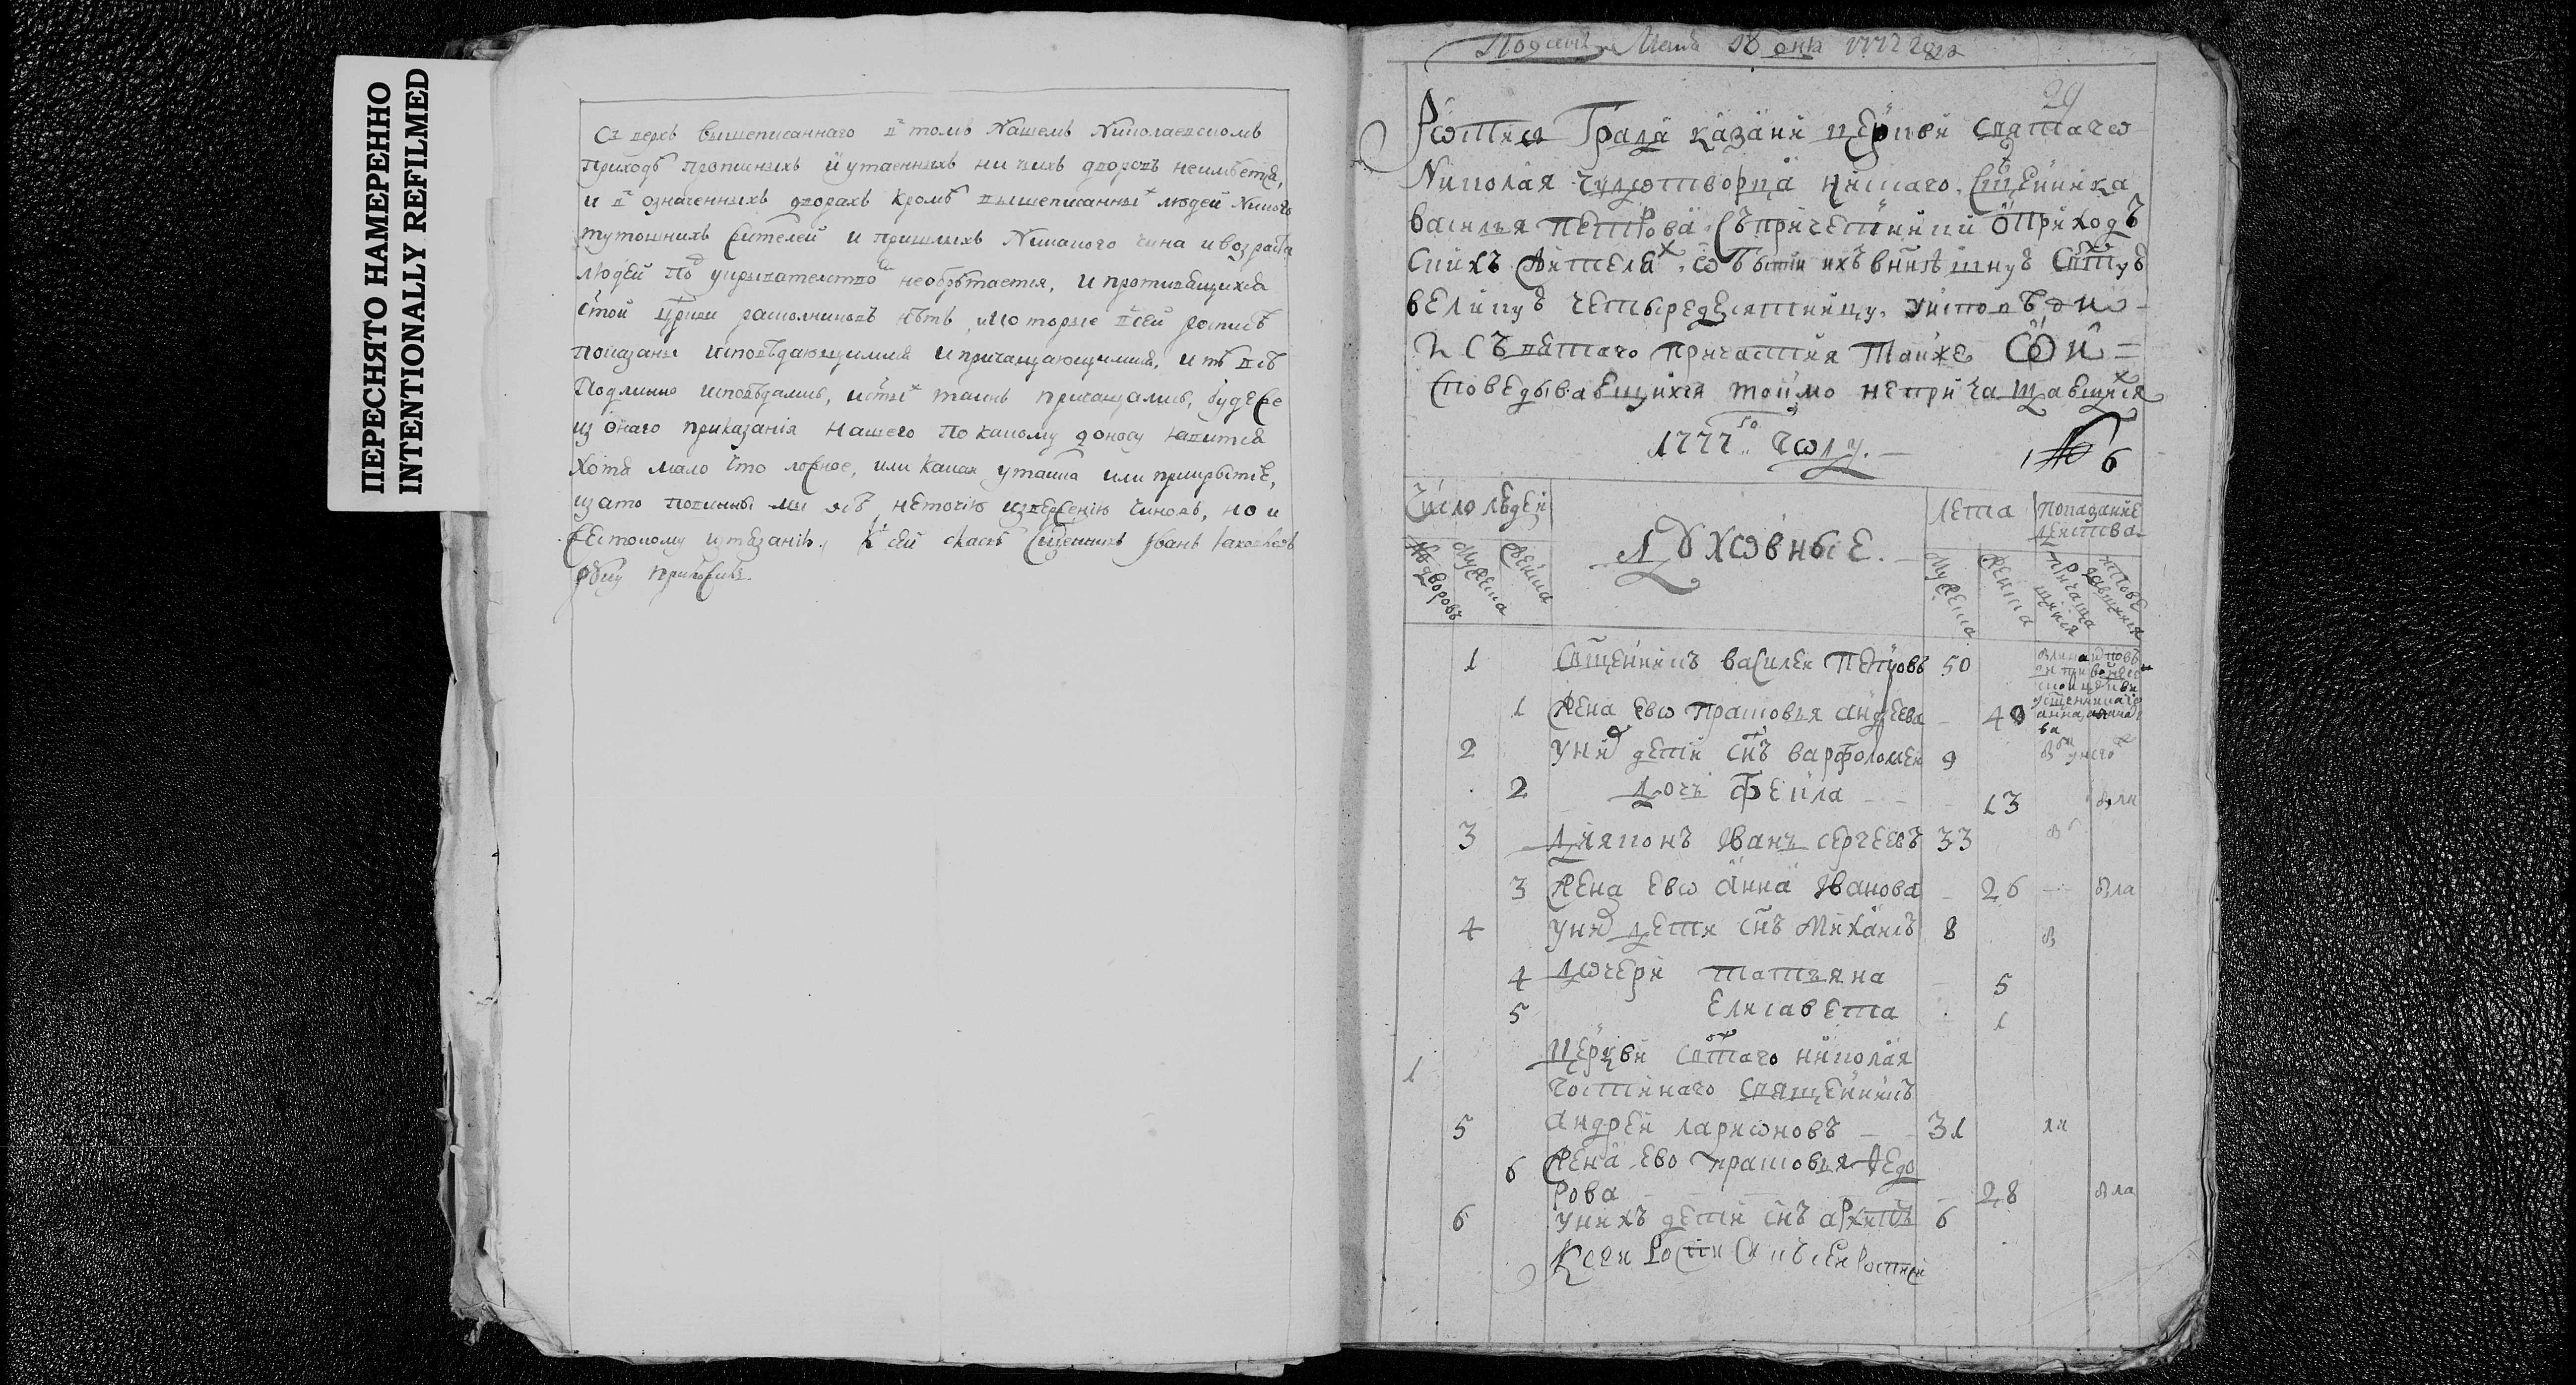 ПЕРЕСНЯТО НАМЕРЕННО
INTENTIONALLY REFILMED
Сверхъ вышеписаннаго в томъ нашемъ Николаевскомъ
приходѣ прописныхъ и утаенныхъ ни чихъ дворовъ неимѣется,
и в означенныхъ дворахъ кромѣ вышеписанныхъ людей никого
тутошнихъ жителей и пришлыхъ никакого чина и возраста
людей под укрывателствомъ необрѣтается, и противящихся
стой цркви расколниковъ нѣтъ, и которые в сей росписѣ
показаны исповѣдающимися и причащающимися, и тѣ всѣ
подлинно исповѣдались, и стыхъ таинъ причащались, буде же
из онаго приказанія нашего по какому доносу явится
хотя мало что ложное, или какая утайка или прикрытіе,
и за то повинны мы всѣ, неточію изверженію чиновъ, но и
жестокому изтязанію. К сей сказкѣ священникъ Іоанъ Іаковлевъ
руку приложилъ.
29
Роспись Града казани церкви святаго
Николая чудотворца нискаго сщенника
василья петрова съ причетники о приход
скихъ жителехъ, о бытіи ихъ в нынѣшную стую
великую четыредесятницу, у исповѣди
и съ святаго причастия також о и
споведывавшихся токмо непричащавшихся
1777 году.
Число людей
Духовные.
лета
показание действа
№ дворовъ
Мужеска
Женска
Мужеска
Женска
1 Священникъ василеи Петровъ 50
1 Жена ево прасковья андреева 40
2 У нихъ дети снъ варфоломеи 9
2 Дочь Фекла 13
3 Диаконъ Иванъ сергеевъ 33
3 Жена ево анна Иванова 26
4 У нихъ дети снъ Михаилъ 8
4 Дочери татьяна 5
5 Елисавета 1
1 Церкви святаго николая
гостинаго священникъ
5 андреи ларионовъ 31
6 Жена ево прасковья Федо
рова 28
6 у нихъ дети снъ архипъ 6